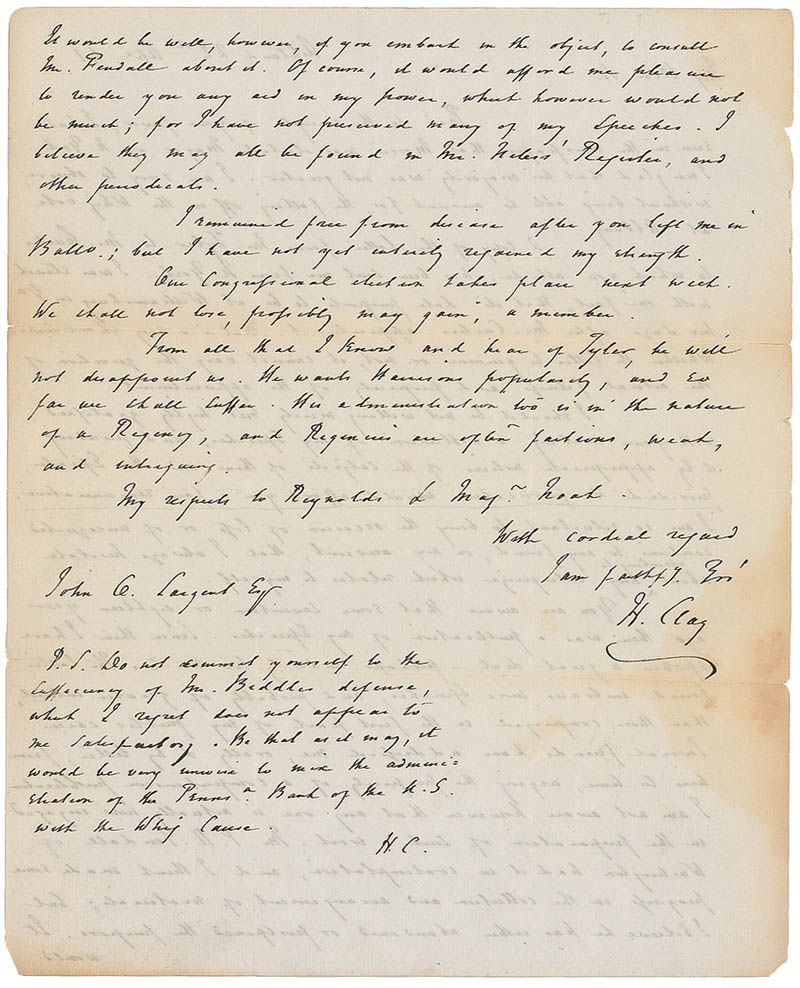 It would be well, however, if you embark in the object, to consult
Mr. Fendall about it. Of course, it would afford me pleasure
to render you any aid in my power, what however would not
be much; for I have not preserved many of my Speeches. I
believe they may all be found in Mr. Niless' Register, and
other periodicals.
I remained free from disease after you left me in
Balto.; but I have not yet entirely regained my strength.
Our Congressional election takes place next week.
We shall not lose, possibly may gain, a member.
From all that I know and hear of Tyler, he will
not disappoint us. He wants Harrisons popularity, and so
far we shall suffer. His administration too is in the nature
of a Regency, and Regencies are often factious, weak,
and intriguing.
My respects to Reynolds & Majr. Noah.
With cordial regard
I am faithfy. Yrs'
John O. Sargent Esqr
H. Clay
P.S. Do not commit yourself to the
sufficiency of Mr. Biddles defense,
what I regret does not appear to
me satisfactory. Be that as it may, it
would be very unwise to mix the admini=
stration of the Penns.a Bank of the U.S.
with the Whig Cause.
H.C.